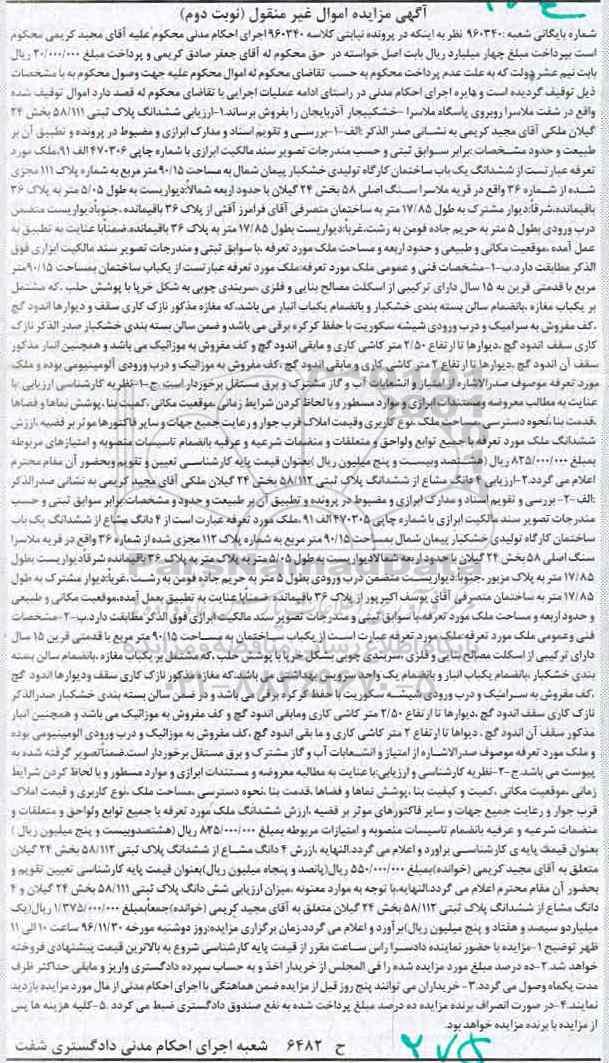 آگهی مزایده اموال غیر منقول (نوبت دوم)
شماره بایگانی شعبه: ۹۶۰۳۴۰ نظر به اینکه در پرونده نیابتی کلاسه ۹۶۰۳۴۰ اجرای احکام مدنی محکوم علیه آقای مجید کریمی محکوم
است بپرداخت مبلغ چهار میلیارد ریال بابت اصل خواسته در حق محکوم له آقای جعفر صادق کریمی و پرداخت مبلغ ۲۰/۰۰۰/۰۰۰ ریال
بابت نیم عشر دولت که به علت عدم پرداخت محکوم به حسب تقاضای محکوم له اموال محکوم علیه جهت وصول محکوم به با مشخصات
ذیل توقیف گردیده است و دایره اجرای احکام مدنی در راستای ادامه عملیات اجرایی با تقاضای محکوم له قصد دارد اموال توقیف شده
واقع در شفت ملاسرا روبروی پاسگاه ملاسرا -خشکبیجار آذربایجان را بفروش برساند.۱-ارزیابی ششدانگ پلاک ثبتی ۵۸/۱۱۱ بخش ۲۴
گیلان ملکی آقای مجید کریمی به نشانی صدر الذکر :الف-۱-بررسی و تقویم اسناد و مدارک ابرازی و مضبوط در پرونده و تطبیق آن بر
طبیعت و حدود مشخصات :برابر سوابق ثبتی و حسب مندرجات تصویر سند مالکیت ابرازی با شماره چاپی ۴۷۰۳۰۶ الف ۹۱،ملک مورد
تعرفه عبارتست از ششدانگ یک باب ساختمان کارگاه تولیدی خشکبار پیمان شمال به مساحت ۹۰/۱۵ متر مربع به شماره پلاک ۱۱۱ مجزی
شده از شماره ۳۶ واقع در قریه ملاسرا سنگ اصلی ۵۸ بخش ۲۴ گیلان با حدود اربعه شمالاً:دیواریست به طول ۵/۰۵ متر به پلاک ۳۶
باقیمانده،شرقاً:دیوار مشترک به طول ۱۷/۸۵ متر به ساختمان متصرفی آقای فرامرز آقئی از پلاک ۳۶ باقیمانده ،جنوباً:دیواریست متضمن
درب ورودی بطول ۵ متر به حریم جاده فومن به رشت،غرباً:دیواریست بطول ۱۷/۸۵ متر به پلاک ۳۶ باقیمانده.ضمناً با عنایت به تطبیق به
عمل آمده ،موقعیت مکانی و طبیعی و حدود اربعه و مساحت ملک مورد تعرفه ،با سوابق ثبتی و مندرجات تصویر سند مالکیت ابرازی فوق
الذکر مطابقت دارد.ب-۱-مشخصات فنی و عمومی ملک مورد تعرفه:ملک مورد تعرفه عبارتست از یکباب ساختمان بمساحت ۹۰/۱۵متر
مربع با قدمتی قرین به ۱۵ سال دارای ترکیبی از اسکلت مصالح بنایی و فلزی ،سربندی چوبی به شکل خرپا با پوشش حلب ،که مشتمل
بر یکباب مغازه ،بانضمام سالن بسته بندی خشکبار و بانضمام یکباب انبار می باشد،که مغازه مذکور نازک کاری سقف و دیوارها اندود گچ
،کف مفروش به سرامیک و درب ورودی شیشه سکوریت با حفظ کرکره برقی می باشد و ضمن سالن بسته بندی خشکبار صدر الذکر نازک
کاری سقف اندود گچ ،دیوارها تا ارتفاع ۲/۵۰ متر کاشی کاری و مابقی اندود گچ و کف مفروش به موزائیک می باشد و همچنین انبار مذکور
سقف آن اندود گچ ،دیوارها تا ارتفاع ۲ متر کاشی کاری و مابقی اندود گچ ،کف مفروش به موزائیک و درب ورودی آلومینیومی بوده و ملک
مورد تعرفه موصوف صدرالاشاره از امتیاز و انشعابات آب و گاز مشترک و برق مستقل برخوردار است .ج-۱-نظریه کارشناسی ارزیابی :با
عنایت به مطالب معروضه و مستندات ابرازی و موارد مسطور و با لحاظ کردن شرایط زمانی ،موقعیت مکانی ،کمیت بنا ،پوشش نماها و فضاها
،قدمت بنا ،نحوه دسترسی ،مساحت ملک ،نوع کاربری وقیمت املاک قرب جوار و رعایت جمیع جهات و سایر فاکتورها موثر بر قضیه ،ارزش
ششدانگ ملک مورد تعرفه با جمیع توابع ولواحق و متعلقات و منضمات شرعیه و عرفیه بانضمام تاسیسات منصوبه و امتیازهای مربوطه
بمبلغ ۸۲۵/۰۰۰/۰۰۰ ریال (هشتصد وبیست و پنج میلیون ریال )بعنوان قیمت پایه کارشناسی تعیین و تقویم وبحضور آن مقام محترم
اعلام می گردد.۲-ارزیابی ۴ دانگ مشاع از ششدانگ پلاک ثبتی ۵۸/۱۱۲ بخش ۲۴ گیلان ملکی آقای مجید کریمی به نشانی صدرالذکر
:الف-۲- بررسی و تقویم اسناد و مدارک ابرازی و مضبوط در پرونده و تطبیق آن بر طبیعت و حدود و مشخصات:برابر سوابق ثبتی و حسب
مندرجات تصویر سند مالکیت ابرازی با شماره چاپی ۴۷۰۳۰۵ الف ۹۱ ،ملک مورد تعرفه عبارت است از ۴ دانگ مشاع از ششدانگ یک باب
ساختمان کارگاه تولیدی خشکبار پیمان شمال بمساحت ۹۰/۱۵ متر مربع به شماره پلاک ۱۱۲ مجزی شده از شماره ۳۶ واقع در قریه ملاسرا
سنگ اصلی ۵۸ بخش ۲۴ گیلان با حدود اربعه شمالا:دیواریست به طول ۵/۰۵ متر به پلاک متر به پلاک ۳۶ باقیمانده شرقا:دیواریست بطول
۱۷/۸۵ متر به پلاک مزبور ،جنوباً:دیواریست متضمن درب ورودی بطول ۵ متر به حریم جاده فومن به رشت ،غرباً:دیوار مشترک به طول
۱۷/۸۵ متر به ساختمان متصرفی آقای یوسف اکبرپور از پلاک ۳۶ باقیمانده ،ضمناً با عنایت به تطبیق بعمل آمده،موقعیت مکانی و طبیعی
و حدود اربعه و مساحت ملک مورد تعرفه،با سوابق ثبتی و مندرجات تصویر سند مالکیت ابرازی فوق الذکر مطابقت دارد.ب-۲-مشخصات
فنی وعمومی ملک مورد تعرفه:ملک مورد تعرفه عبارت است از یکباب ساختمان به مساحت ۹۰/۱۵ متر مربع با قدمتی قرین ۱۵ سال
دارای ترکیبی از اسکلت مصالح بنایی و فلزی ،سربندی چوبی بشکل خرپا با پوشش حلب ،که مشتمل بر یکباب مغازه ،بانضمام سالن بسته
بندی خشکبار ،بانضمام یکباب انبار و بانضمام یک واحد سرویس بهداشتی می باشد،که مغازه مذکور نازک کاری سقف ودیوارها اندود گچ
،کف مفروش به سرامیک و درب ورودی شیشه سکوریت با حفظ کرکره برقی می باشد و در ضمن سالن بسته بندی خشکبار صدرالذکر
نازک کاری سقف اندود گچ ،دیوارها تا ارتفاع ۲/۵۰ متر کاشی کاری ومابقی اندود گچ و کف مفروش به موزائیک می باشد و همچنین انبار
مذکور سقف آن اندود گچ ، دیواها تا ارتفاع ۲ متر کاشی کاری و ما بقی اندود گچ ،کف مفروش به موزائیک و درب ورودی الومینیومی بوده
و ملک مورد تعرفه موصوف صدرالاشاره از امتیاز و انشعابات آب و گاز مشترک و برق مستقل برخوردار است.ضمناًتصویر گرفته شده به
پیوست می باشد.ج-۲-نظریه کارشناسی و ارزیابی:با عنایت به مطالبه معروضه و مستندات ابرازی و موارد مسطور و با لحاظ کردن شرایط
زمانی ،موقعیت مکانی ،کمیت و کیفیت بنا ،پوشش نماها و فضاها ،قدمت بنا ،نحوه دسترسی ،مساحت ملک ،نوع کاربری و قیمت املاک
قرب جوار و رعایت جمیع جهات و سایر فاکتورهای موثر بر قضیه ،ارزش ششدانگ ملک مورد تعرفه با جمیع توابع ولواحق و متعلقات و
منضمات شرعیه و عرفیه بانضمام تاسیسات منصوبه و امتیازات مربوطه بمبلغ ۸۲۵/۰۰۰/۰۰۰ ریال (هشتصدوبیست و پنج میلیون ریال )
بعنوان قیمت پایه ی کارشناسی براورد و اعلام می گردد.النهایه ،ارزش ۴ دانگ مشاع از ششدانگ پلاک ثبتی ۵۸/۱۱۲ بخش ۲۴ گیلان
متعلق به آقای مجید کریمی (خوانده)بمبلغ ۵۵۰/۰۰۰/۰۰۰ ریال(پانصد و پنجاه میلیون ریال)بعنوان قیمت پایه کارشناسی تعیین تقویم و
بحضور آن مقام محترم اعلام می گردد.النهایه،با توجه به موارد معنونه ،میزان ارزیابی شش دانگ پلاک ثبتی ۵۸/۱۱۱ بخش ۲۴ گیلان و ۴
دانگ مشاع از ششدانگ پلاک ثبتی ۵۸/۱۱۲ بخش ۲۴ گیلان متعلق به آقای مجید کریمی (خوانده)جمعاًبمبلغ ۱/۳۷۵/۰۰۰/۰۰۰ ریال(یک
میلیاردو سیصد و هفتاد و پنج میلیون ریال)برآورد و اعلام می گردد.زمان برگزاری مزایده:روز دوشنبه مورخه ۹۶/۱۱/۳۰ ساعت ۱۰ الی ۱۱
ظهر توضیح ۱-مزایده با حضور نماینده دادسرا راس ساعت مقرر از قیمت پایه کارشناسی شروع به بالاترین قیمت پیشنهادی فروخته
خواهد شد.۲-ده درصد مبلغ مورد مزایده شده را فی المجلس از خریدار اخذ و به حساب سپرده دادگستری واریز و مابقی حداکثر ظرف
مدت یکماه وصول می گردد.۳-خریداران می توانند پنج روز قبل از مزایده ضمن هماهنگی با اجرای احکام مدنی از مال مورد مزایده بازدید
نمایند.۴-در صورت انصراف برنده مزایده ده درصد مبلغ پرداخت شده به نفع صندوق دادگستری ضبط می گردد .۵-کلیه هزینه ها پس
از مزایده با برنده مزایده خواهد بود.
ج ۶۴۸۲ شعبه اجرای احکام مدنی دادگستری شفت